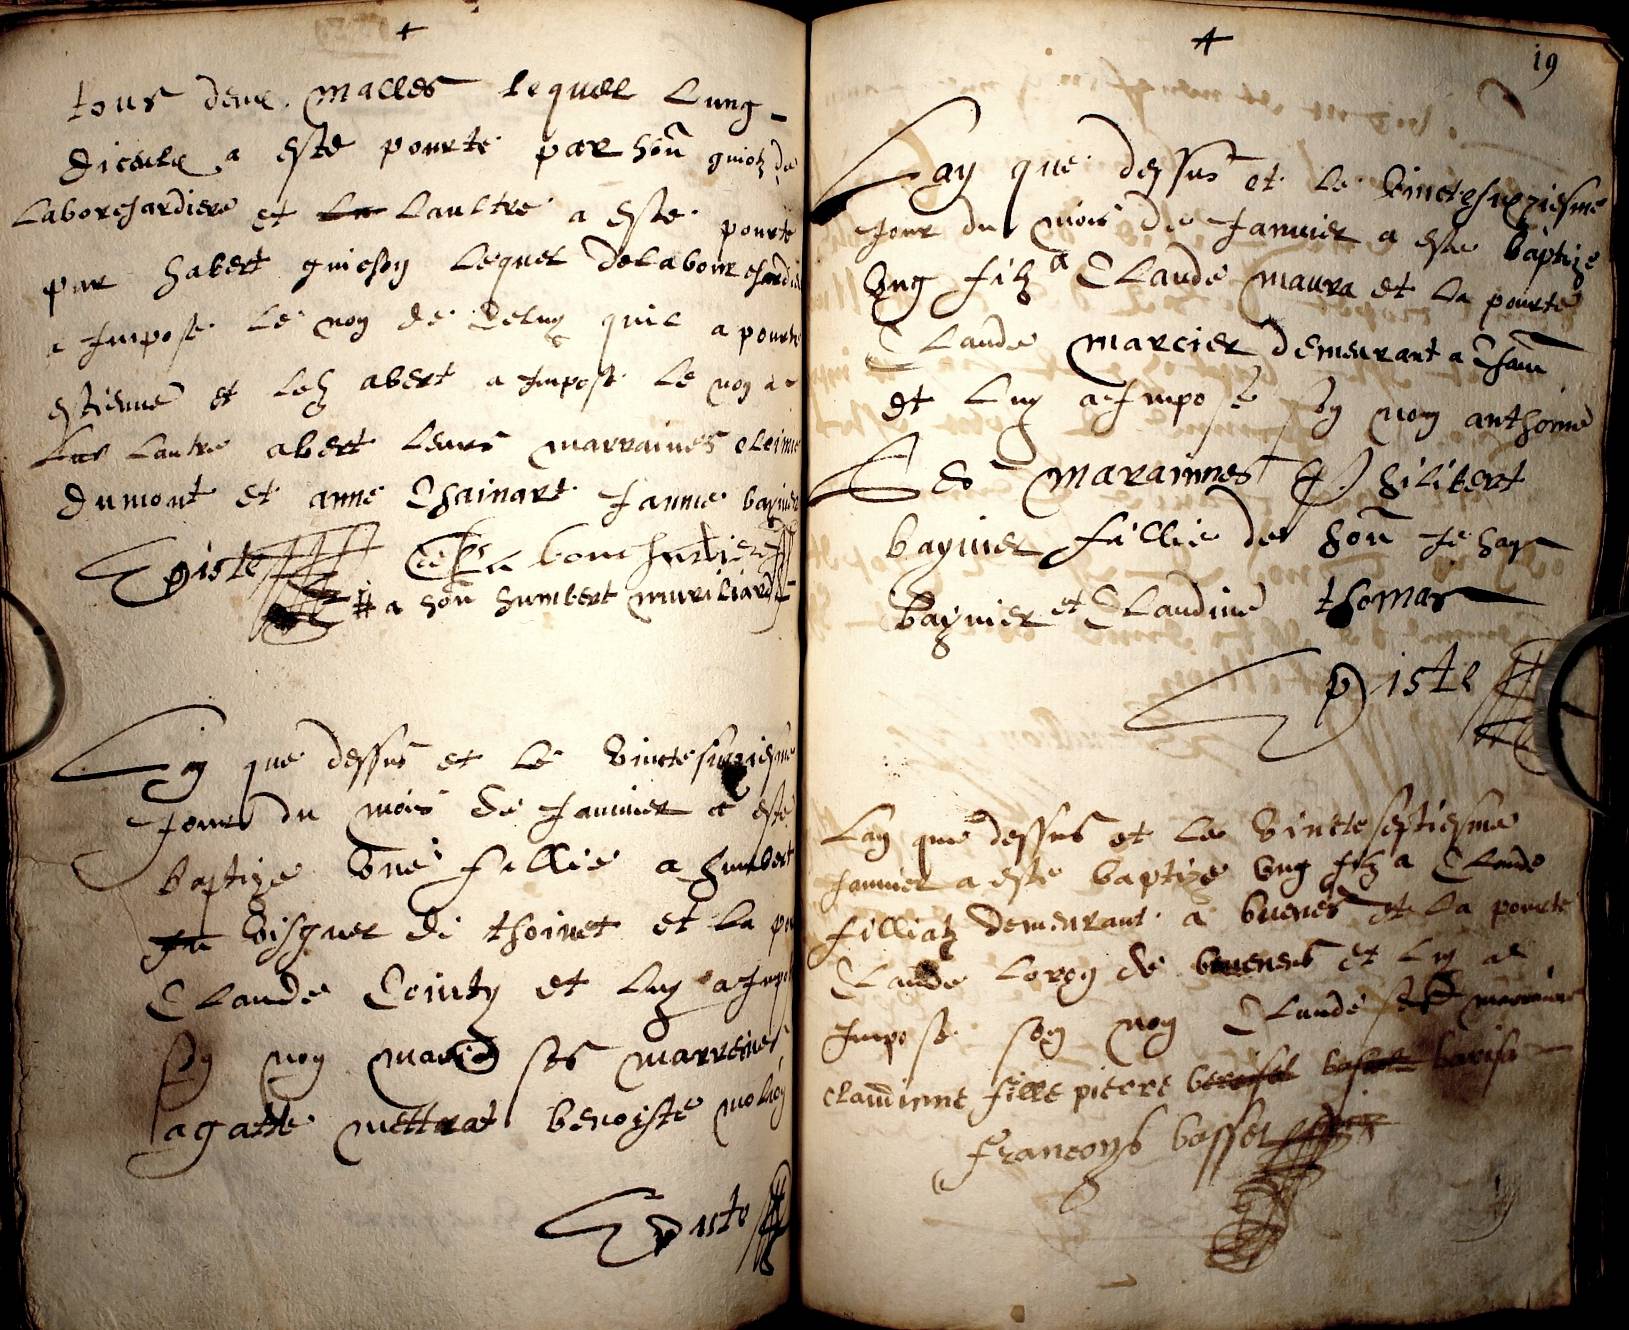 tous deux malles lequel lung
diceulx a este pourte par hon guiot de
laborchardiere et laultre a este pourte
par habert guichon lequel delabourchardie
a Impose le nom de celuy quil a pourte
estienne et led abert a Impose le nom a
lautre abert leurs marraines cleime
dumont et anne Chainart Janne
Episte
a hon humbert
Lan que dessus et le vinctesixziesme
Jour du mois de Janvier a este
baptize une fillie a humbert
visquet de thoinet et la po
Claude Cointy et luy a Impo
son nom marie ses marreines
agatte mettrat benoiste
Episte
19
Lan que dessus et le vinctesixziesme
Jour du mois de Janvier a este baptize
ung filz a Claude maura et la pourte
Claude marcier demeurant a
et luy a Impose son nom anthoine
Les marainnes Philibert
baynier fillie de hon Jehan
baynier et Claudine thomas
Episte
Lan que dessus et le vincteseptiesme
Janvier a este baptize ung filz a Claude
filliatz demeurant a buenes et la pourte
Claude loron de buenens et luy a
Impose son nom Claude marraine
claudinne fille pierre
Francoys bosset